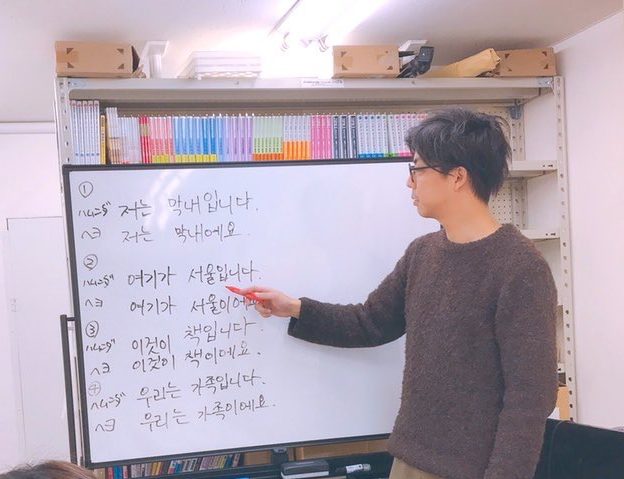 ①
ハムニダ 저는 막내입니다.
ヘヨ 저는 막내에요.
②
ハムニダ 여기가 서울입니다.
ヘヨ 여기가 서울이에요
③
ハムニダ 이것이 책입니다.
ヘヨ 이것이 책이에요.
④
ハムニダ 우리는 가족입니다.
ヘヨ 우리는 가족이에요.